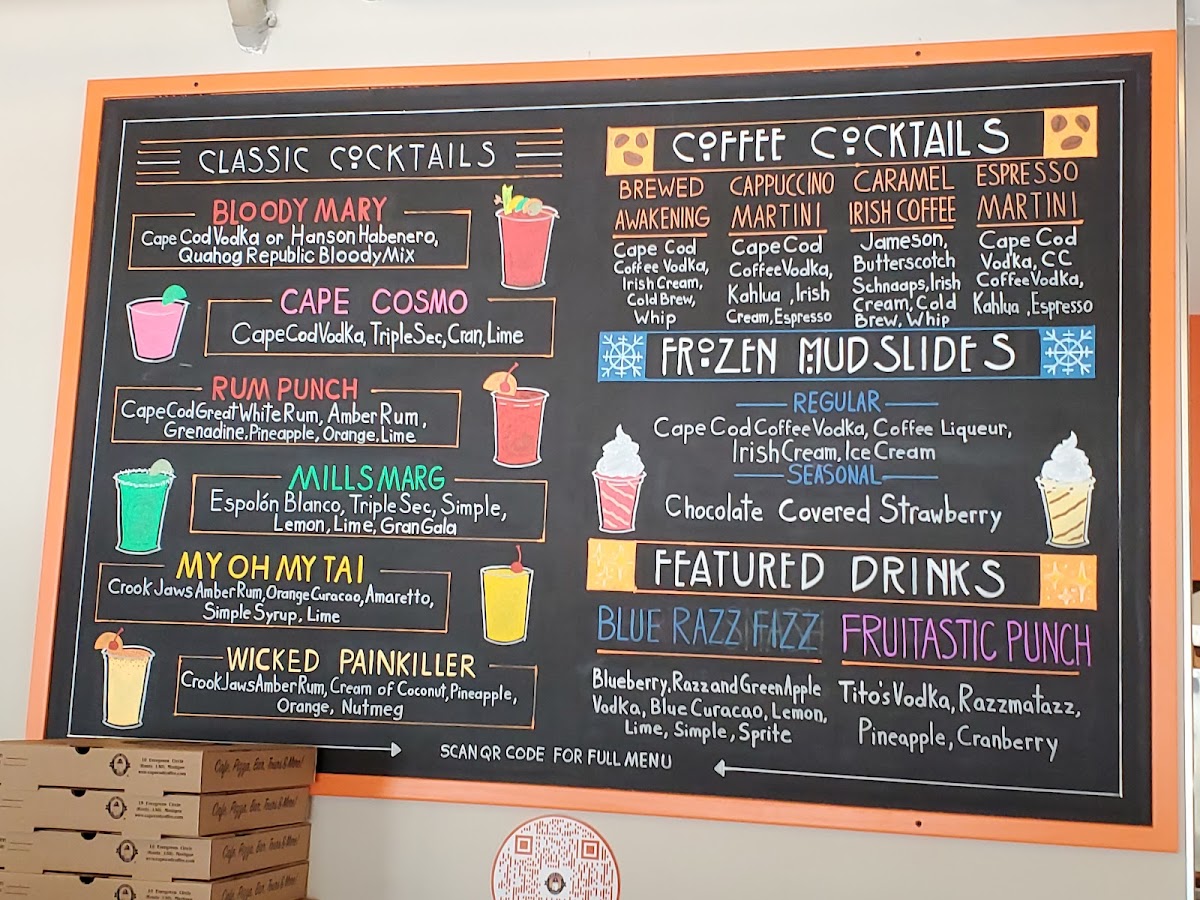 CLASSIC COCKTAILS
BLOODY MARY
Cape Cod Vodka or Hanson Habenero,
Quahog Republic Bloody Mix
CAPE COSMO
Cape Cod Vodka, Triple Sec, Cran, Lime
RUM PUNCH
Cape Cod Great White Rum, Amber Rum,
Grenadine, Pineapple, Orange, Lime
MILLS MARG
Espolón Blanco, Triple Sec, Simple,
Lemon, Lime, Gran Gala
MY OH MY TAI
Crook Jaws Amber Rum, Orange Curacao, Amaretto,
Simple Syrup, Lime
WICKED PAINKILLER
Crook Jaws Amber Rum, Cream of Coconut, Pineapple,
Orange, Nutmeg
COFFEE COCKTAILS
BREWED
AWAKENING
Cape Cod
Coffee Vodka,
Irish Cream,
Cold Brew,
Whip
CAPPUCCINO
MARTINI
Cape Cod
Coffee Vodka,
Kahlua, Irish
Cream, Espresso
CARAMEL
IRISH COFFEE
Jameson,
Butterscotch
Schnaaps, Irish
Cream, Cold
Brew, Whip
ESPRESSO
MARTINI
Cape Cod
Vodka, CC
Coffee Vodka,
Kahlua, Espresso
FROZEN MUDSLIDES
REGULAR
Cape Cod Coffee Vodka, Coffee Liqueur,
Irish Cream, Ice Cream
SEASONAL
Chocolate Covered Strawberry
FEATURED DRINKS
BLUE RAZZ FAZZ
Blueberry, Razz and Green Apple
Vodka, Blue Curacao, Lemon,
Lime, Simple, Sprite
FRUITASTIC PUNCH
Tito's Vodka, Razzmatazz,
Pineapple, Cranberry
SCAN QR CODE FOR FULL MENU
Cafe, Pizza, Bar, Tours & More!
Cafe, Pizza, Bar, Tours & More!
Cafe, Pizza, Bar, Tours & More!
Cafe, Pizza, Bar, Tours & More!